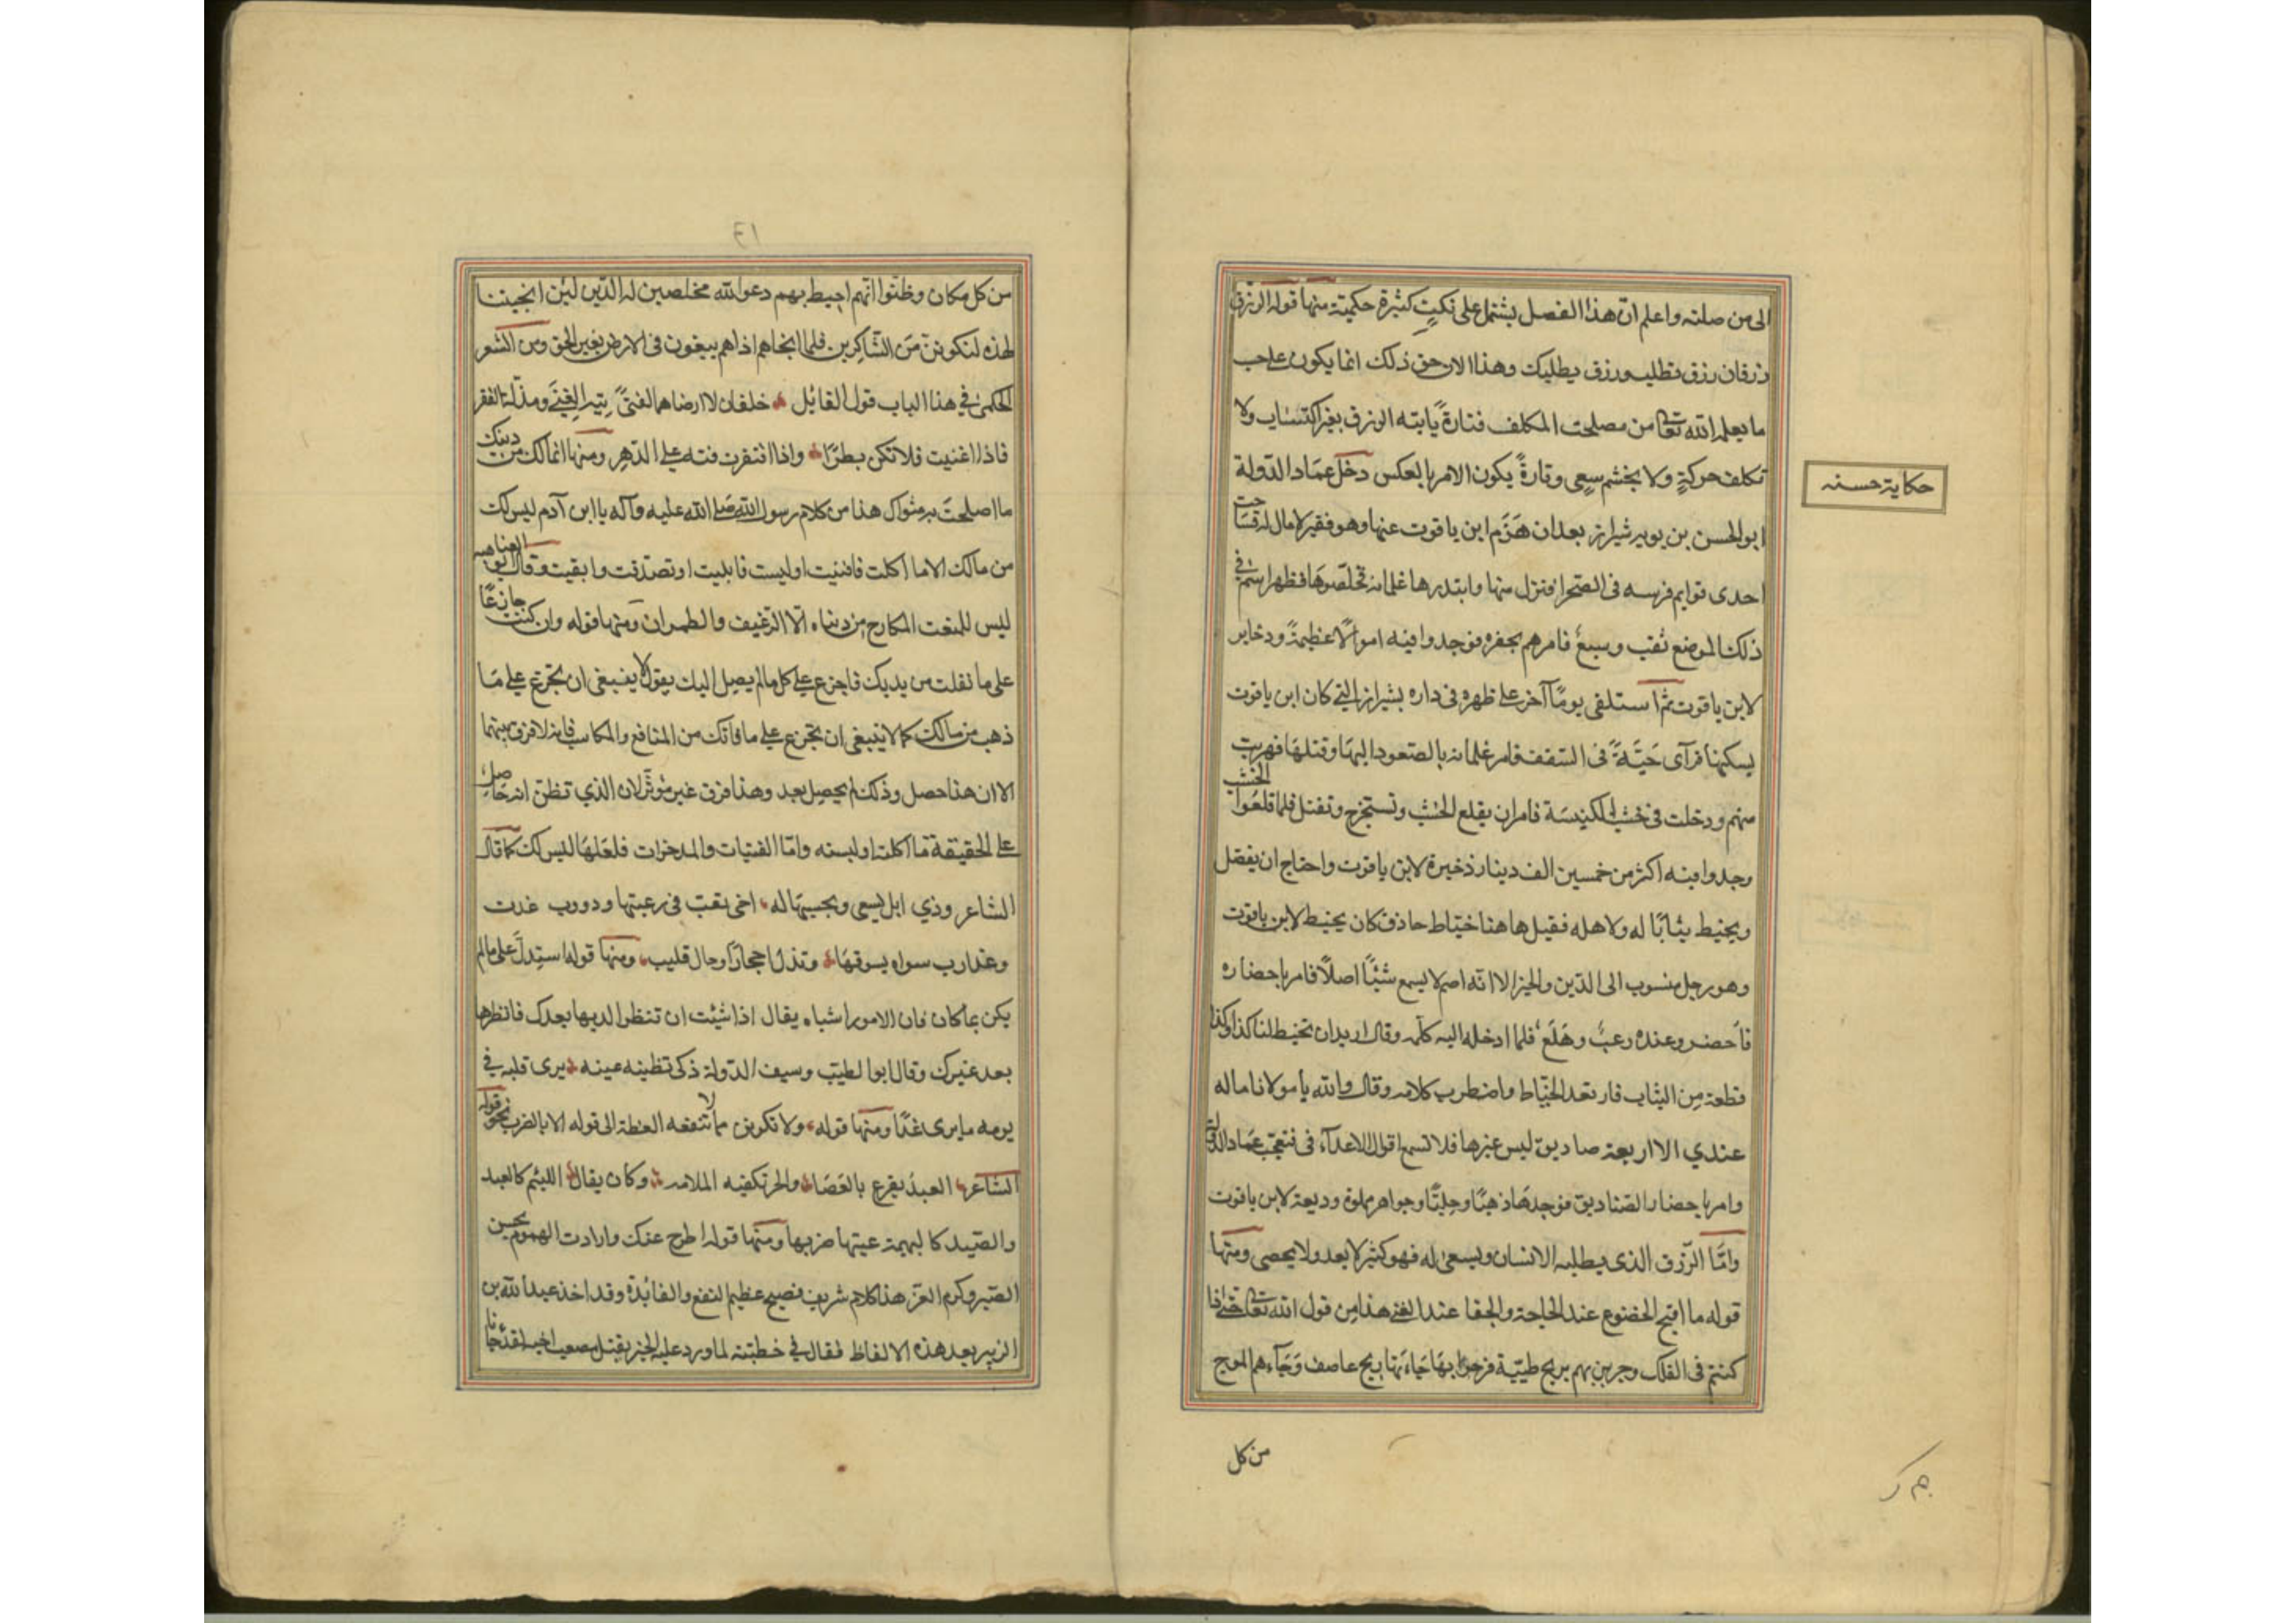 الى من صلته واعلم ان هذا الفصل يشتمل على نكتٍ كثيرة حكمية منها قوله الرزق
رزقان رزق تطلبه ورزق يطلبك وهذا لان حق ذلك انما يكون على حسب
ما يعلمه الله تعالى من مصلحت المكلف فتارةً يأتيه الرزق بغير اكتساب ولا
تكلف حركةٍ ولا تجشم سعي وتارةً يكون الامر بالعكس دخل عماد الدولة
حكاية حسنه
ابو الحسن بن بويه شيراز بعد ان هَزَم ابن ياقوت عنها وهو فقير لا مال له فساخت
احدى قوايم فرسه في الصحرا فنزل منها وابتدرها غلمانه فخلصوها فظهر لهم في
ذلك الموضع نقب وسيع فامرهم بحفره فوجدوا فيه اموالًا عظيمةً وذخاير
لابن ياقوت ثم استلقى يومًا آخر على ظهره في داره بشيراز التي كان ابن ياقوت
يسكنها فرآى حَيَّةً في السقف فامر غلمانه بالصعود اليها وقتلها فهربت
منهم ودخلت في خشب الكنيسة فامر ان يقلع الخشب وتستخرج وتقتل فلما قلعوا الخشب
وجدوا فيه اكثر من خمسين الف دينار ذخيرة لابن ياقوت واحتاج ان يفصل
ويخيط ثيابًا له ولاهله فقيل هاهنا خياط حاذق كان يخيط لابن ياقوت
وهو رجل منسوب الى الدين والخير الا انه اصم لا يسمع شيئًا اصلًا فامر باحضاره
فاَحضر وعنده رعبٌ وهَلَع فلما ادخله اليه كلّمه وقال اريد ان تخيط لنا كذا وكذا
قطعة مِن الثياب فارتعد الخياط واضطرب كلامه وقال والله يا مولانا ما له
عندي الا اربعة صناديق ليس غيرها فلا تسمع قول الاعدآء في فتعجب عماد الدولة
وامر باحضار الصناديق فوجدها ذهبًا وحليًا وجواهر مملوة وديعة لابن ياقوت
وامّا الرزق الذي يطلبه الانسان ويسعى له فهو كثير لا يعد ولا يحصى ومنها
قوله ما اقبح الخضوع عند الحاجة والجفا عند الغنى هذا من قول الله تعالى حتى اذا
كنتم في الفلك وجرين بهم بريح طيّبة فرحوا بها جَاءَتها ريح عاصف وَجَآءهم الموج
من كل
١٦
من كل مكان وظنوا انّهم احيط بهم دعوا الله مخلصين له الدّين لئن انجيتنا
لهذه لنكوننّ مَن الشّاكرين فلما انجاهم اذاهم يبغون في الارض بغير الحق ومن الشعر
الحكمي في هذا الباب قول القائل خلقان لا ارضاهما لفتىً تيه الغِنَى ومذلة الفقر
فاذا اغنيت فلا تكن بطرًا واذا افتقرت فته على الدّهر ومنها انما لك من دنياك
ما اصلحت به مثواك هذا من كلام رسول الله صلى الله عليه وآله يا ابن آدم ليس لك
من مالك الا ما اكلت فافنيت او لبست فابليت او تصدّقت وابقيت وقال ابو العتاهيه
ليس للمتعب المكادح من دنياه الّا الرّغيف والطمران ومنها قوله وان كنت جازعًا
على ما تفلت من يديك فاجزع على كل ما لم يصل اليك يقول لا ينبغي ان تجزع على مَا
ذهب من مالك كما لا ينبغي ان تجزع على ما فاتك من المنافع والمكاسب فانه لا فرق بينهما
الا ان هذا حصل وذلك لم يحصل بعد وهذا فرق غير مؤثّر لان الذي تظن انه حاصل
على الحقيقة ما اكلت او لبسته وامّا القنيات والمدخرات فلعلها ليس لك كما قال
الشاعر وذي ابل يسعى ويحسبها له اخى تعب في رعيتها ودؤوب غدت
وغدا رب سواه يسوقها وتذل احجارًا وجال قليب ومنها قوله استدلّ على ما لم
يكن بما كان فان الامور اشباه يقال اذا شئت ان تنظر الدنيا بعدك فانظرها
بعد غيرك وقال ابو الطيب وسيف الدولة ذكى تظنيه عينه يرى قلبه في
يومه ما يرى غدًا ومنها قوله ولا تكونن مما لا تنفعه العظة الى قوله الا بالضرب نحو قول
الشاعر العبد يقرع بالعَصَا والحر تكفيه الملامه وكان يقال اللئيم كالعبد
والعبد كالبهيمة عيتها ضربها ومنها قوله اطرح عنك واردات الهموم بحسن
الصبر وكرم العز هذا كلام شريف فصيح عظيم النفع والفائدة وقد اخذ عبد الله بن
الزبير بعد هذه الالفاظ فقال في خطبته لما ورد عليه الخبر بقتل مصعب اخيه لقد جانا